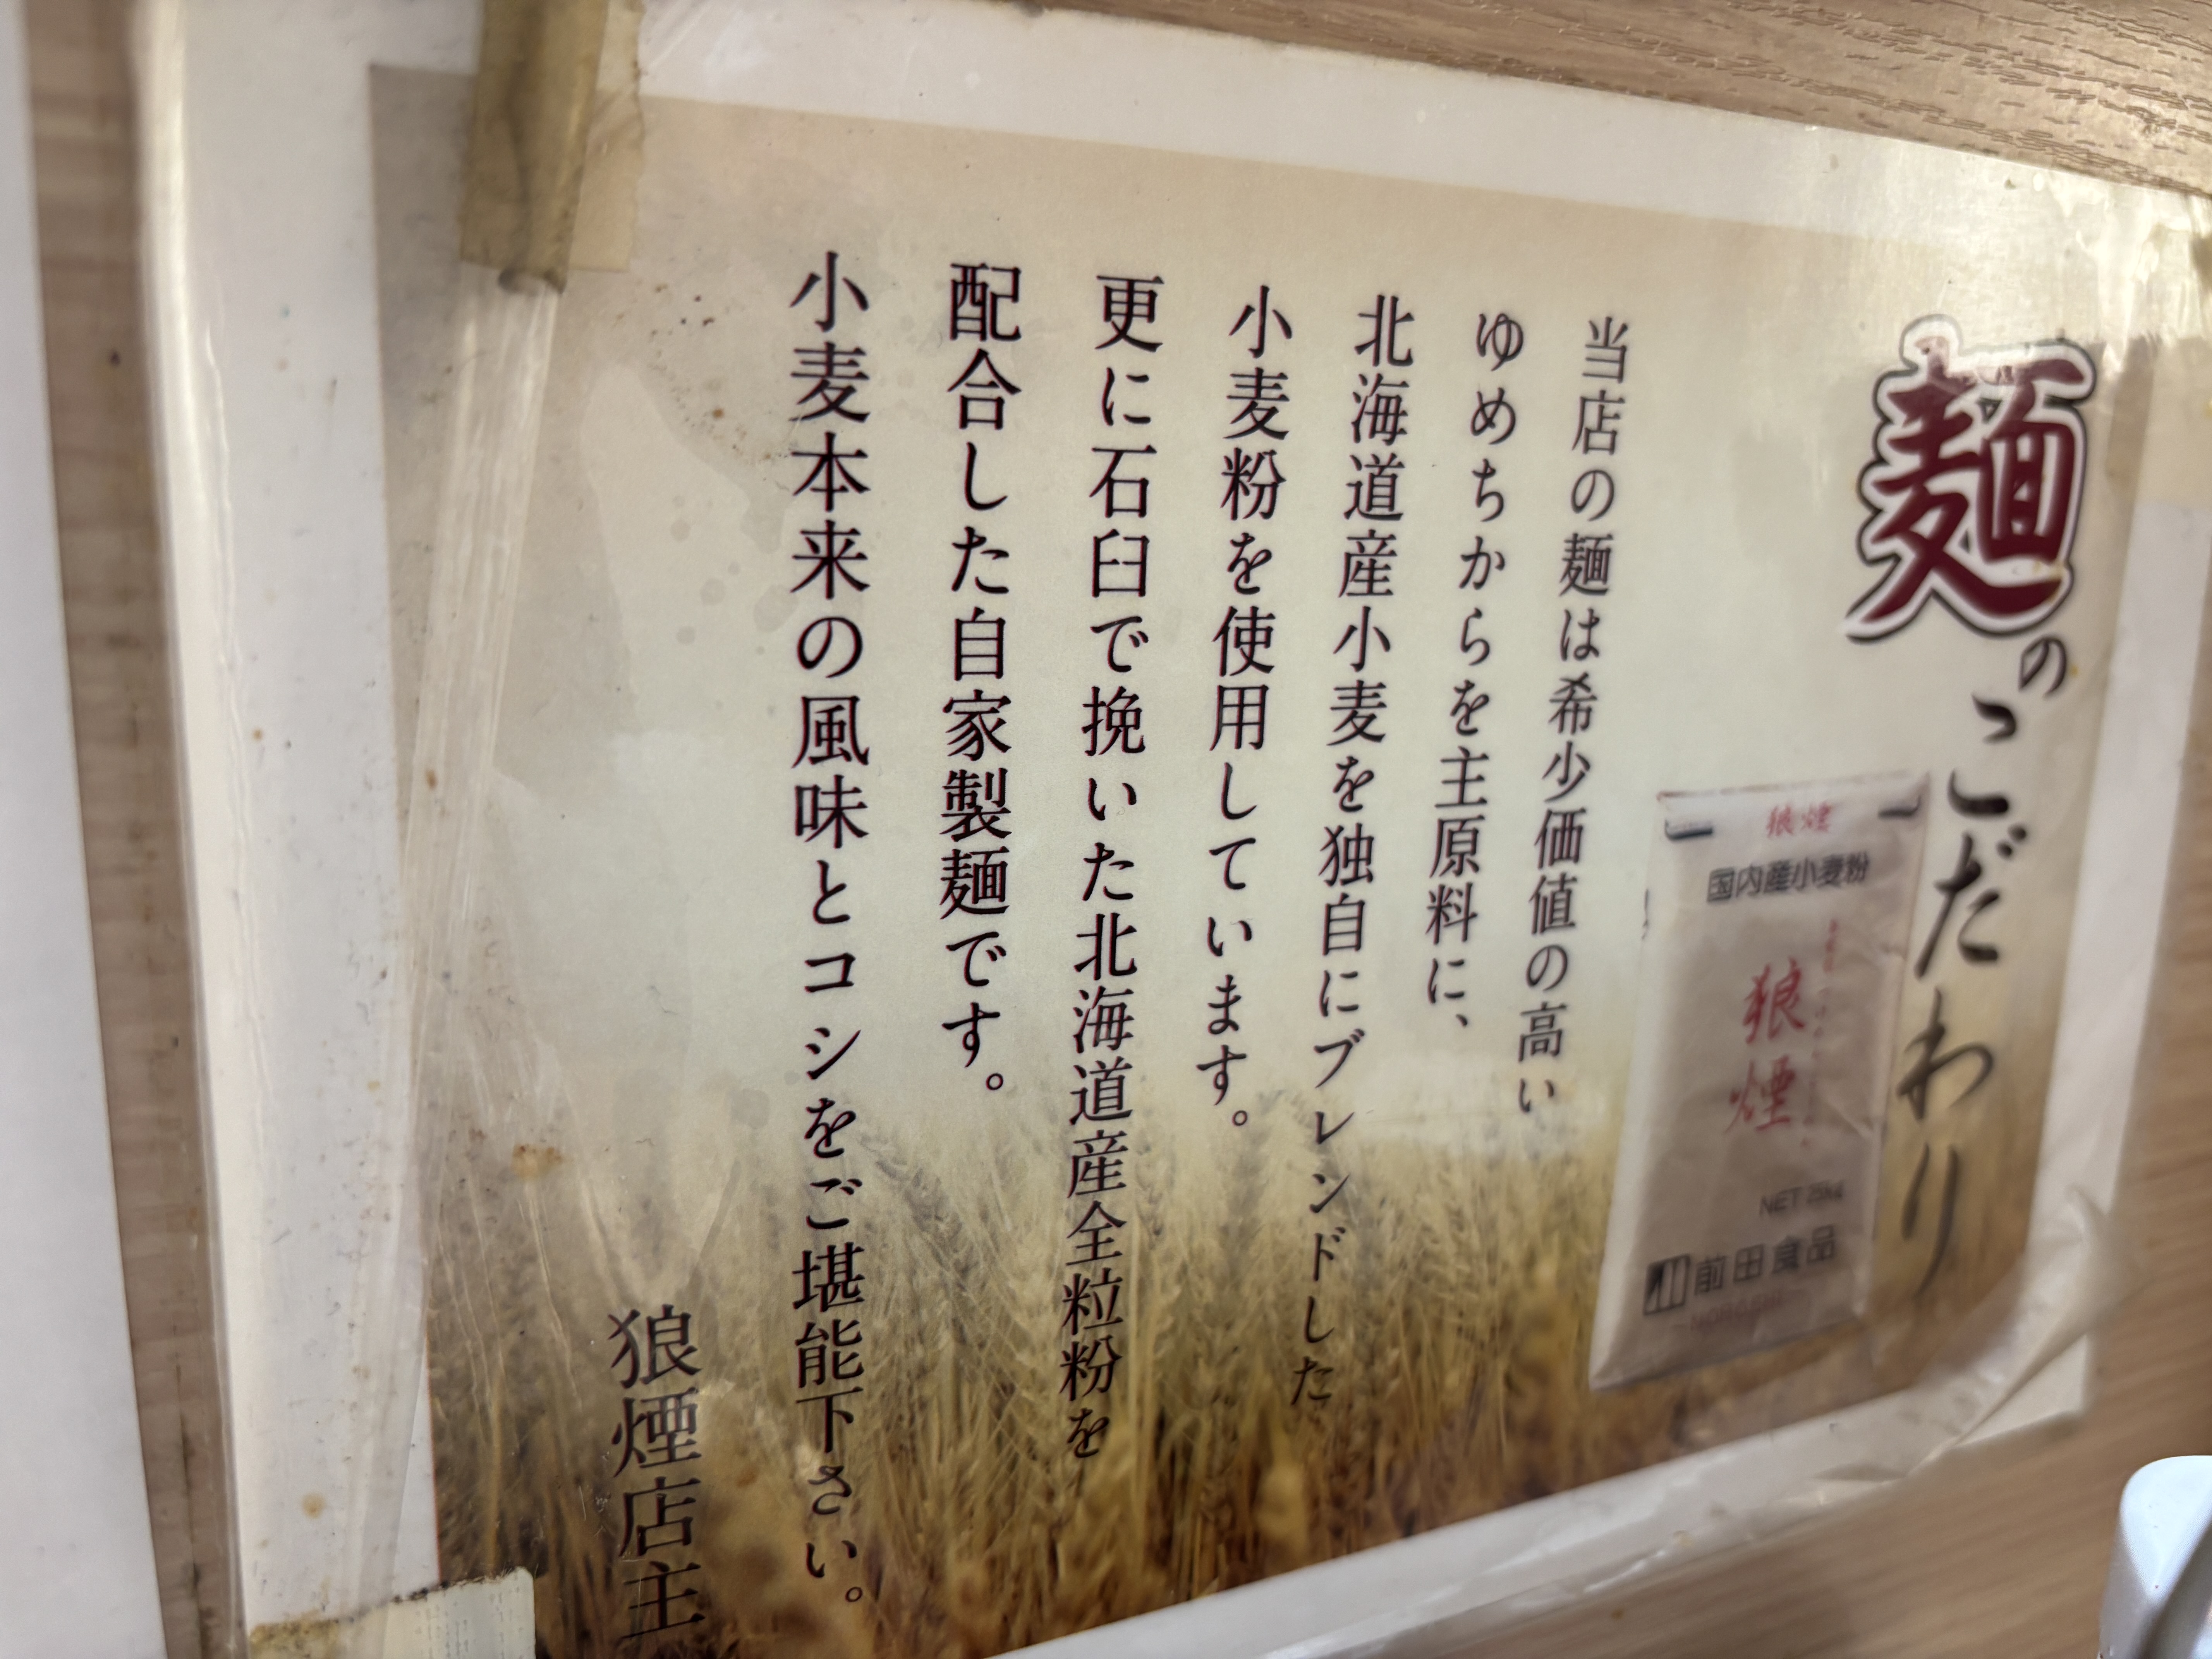 麺のこだわり
狼煙
国内産小麦粉
狼煙
前田食品
当店の麺は希少価値の高い
ゆめちからを主原料に、
北海道産小麦を独自にブレンドした
小麦粉を使用しています。
更に石臼で挽いた北海道産全粒粉を
配合した自家製麺です。
小麦本来の風味とコシをご堪能下さい。
狼煙店主